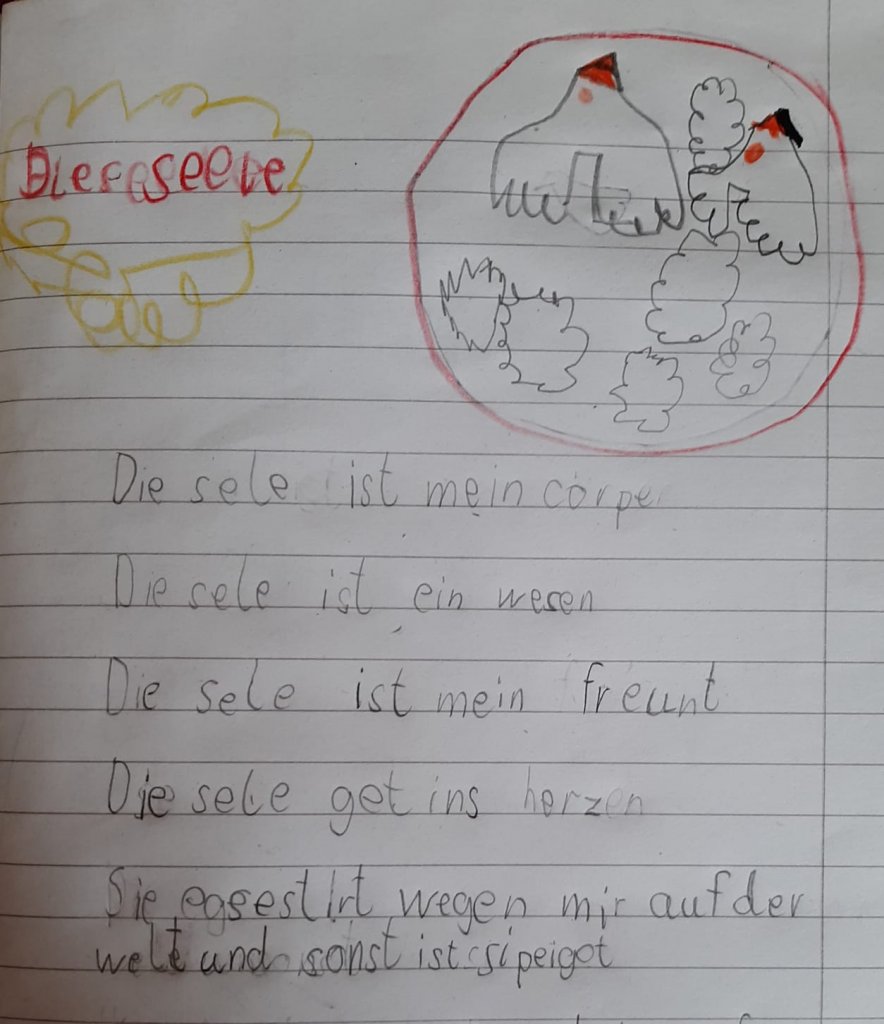 Die seele
Die sele ist mein corpe
Die sele ist ein wesen
Die sele ist mein freunt
Die sele get ins herzen
Sie egsestirt wegen mir auf der
welt und sonst ist si peigot